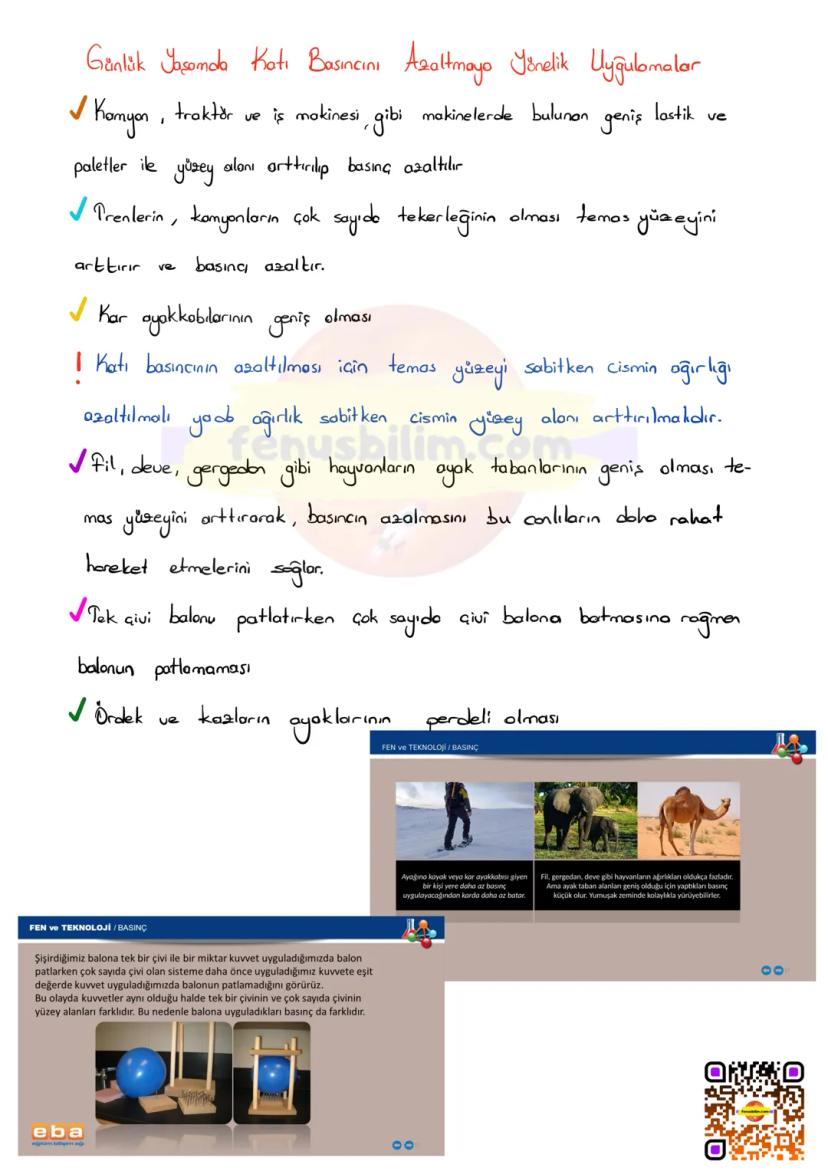 Günlük Yaşamda Katı Basıncını Azaltmaya Yönelik Uygulamalar
✓ Kamyon, traktör ve iş makinesi gibi makinelerde bulunan geniş lastik ve
paletler ile yüzey alanı arttırılıp basınç azaltılır
✓ Trenlerin, kamyonların çok sayıda tekerleğinin olması temas yüzeyini
arttırır ve basıncı azaltır.
✓ Kar ayakkabılarının geniş olması
! Katı basıncının azaltılması için temas yüzeyi sabitken cismin ağırlığı
azaltılmalı yada ağırlık sabitken cismin yüzey alanı arttırılmalıdır.
fenusbilim.com
✓ Fil, deve, gergedan gibi hayvanların ayak tabanlarının geniş olması te-
mas yüzeyini arttırarak, basıncın azalmasını bu canlıların daha rahat
hareket etmelerini sağlar.
✓ Tek çivi balonu patlatırken çok sayıda çivi balona batmasına rağmen
balonun patlamaması
✓ Ördek ve kazların ayaklarının perdeli olması
FEN ve TEKNOLOJİ / BASINÇ
Ayağına kayak veya kar ayakkabısı giyen
bir kişi yere daha az basınç
uygulayacağından karda daha az batar.
Fil, gergedan, deve gibi hayvanların ağırlıkları oldukça fazladır.
Ama ayak taban alanları geniş olduğu için yaptıkları basınç
küçük olur. Yumuşak zeminde kolaylıkla yürüyebilirler.
FEN ve TEKNOLOJİ / BASINÇ
Şişirdiğimiz balona tek bir çivi ile bir miktar kuvvet uyguladığımızda balon
patlarken çok sayıda çivi olan sisteme daha önce uyguladığımız kuvvete eşit
değerde kuvvet uyguladığımızda balonun patlamadığını görürüz.
Bu olayda kuvvetler aynı olduğu halde tek bir çivinin ve çok sayıda çivinin
yüzey alanları farklıdır. Bu nedenle balona uyguladıkları basınç da farklıdır.
eba
eğitim bilişim ağı
fenusbilim.com